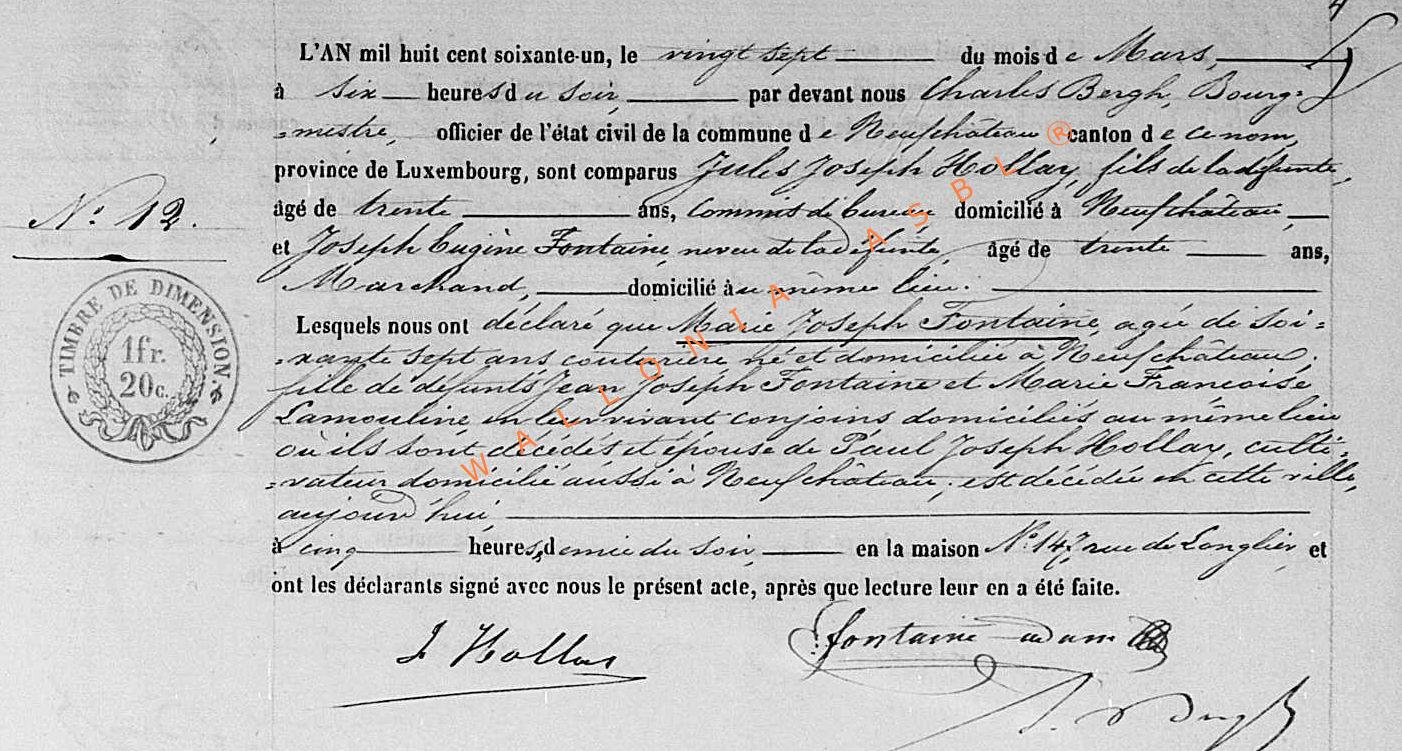 4
L'AN mil huit cent soixante-un, le vingt sept du mois de Mars,
à six heures du soir, par devant nous Charles Bergh, Bourg=
=mestre, officier de l'état civil de la commune de Neufchâteau canton de ce nom,
province de Luxembourg, sont comparus Jules Joseph Hollay, fils de la défunte,
N° 12.
âgé de trente ans, commis de bureau, domicilié à Neufchâteau,
et Joseph Eugène Fontaine, neveu de la défunte, âgé de trente ans,
Marchand, domicilié au même lieu.
Lesquels nous ont déclaré que Marie Joseph Fontaine, agée de soi=
=xante sept ans couturière né et domiciliée à Neufchâteau,
fille de défunts Jean Joseph Fontaine et Marie Francoise
Lamouline en leur vivant conjoins domiciliés au même lieu
où ils sont décédés et épouse de Paul Joseph Hollay, culti=
=vateur domicilié aussi à Neufchâteau, est décédée en cette ville,
aujourd'hui,
à cinq heures, demie du soir, en la maison N° 147, rue de Longlier, et
ont les déclarants signé avec nous le présent acte, après que lecture leur en a été faite.
TIMBRE DE DIMENSION
1 fr.
20 c.
J Hollay
fontaine adam
WALLONIA ASBL ®